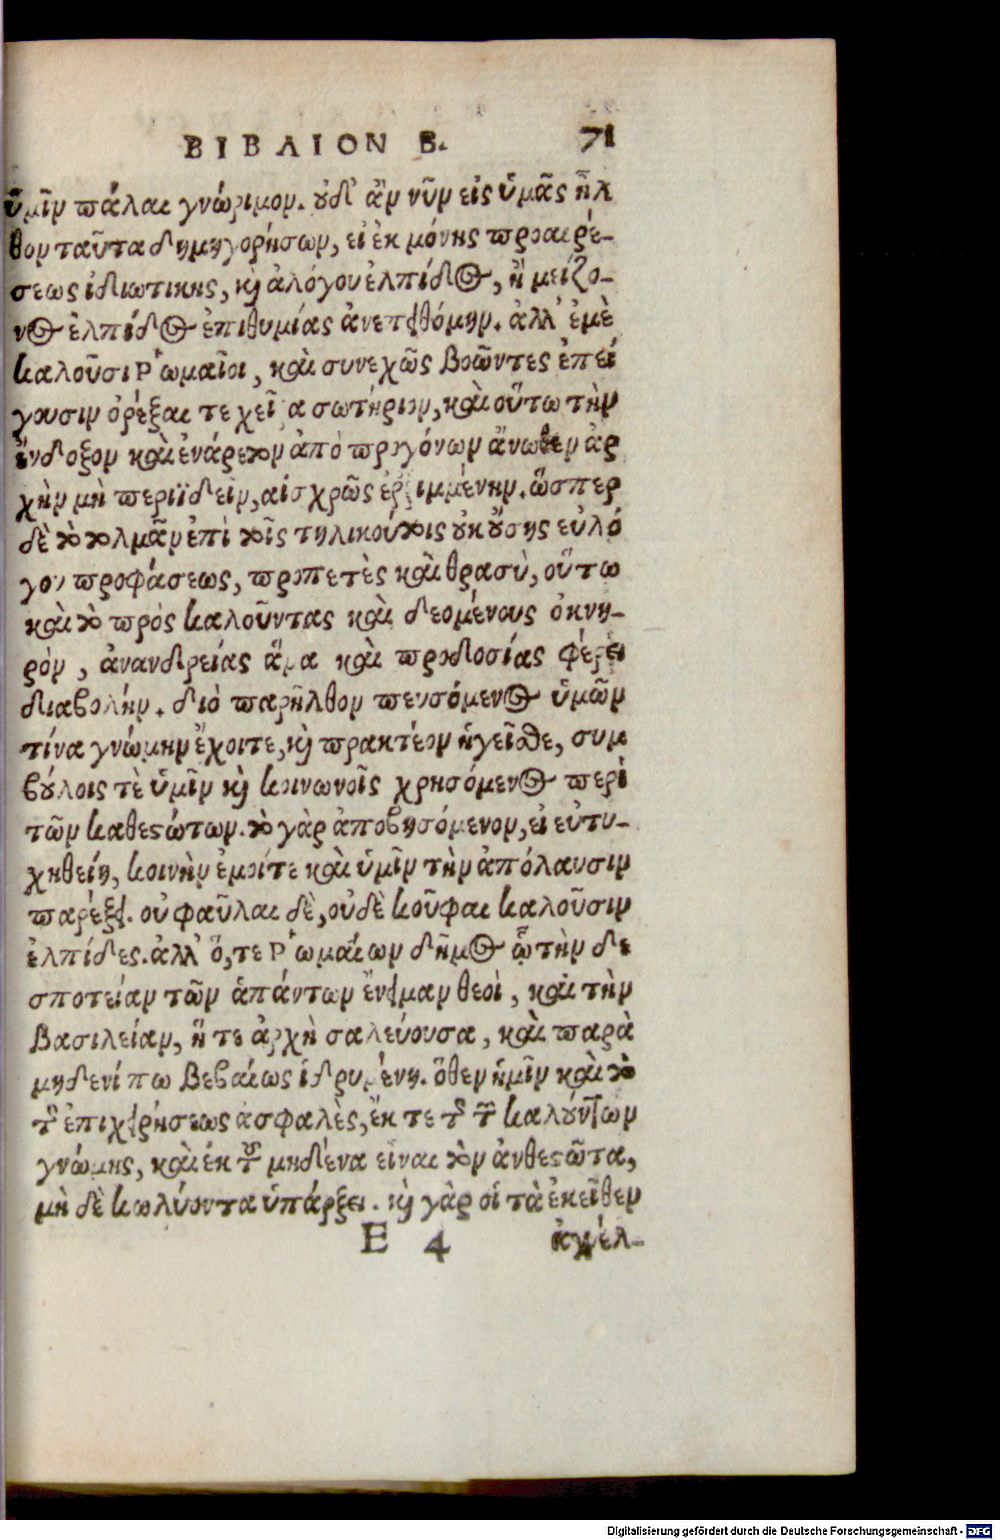 ΒΙΒΛΙΟΝ Β. 71
ὑμῖν πάλαι γνώριμον. οὐδ' ἂν νῦν εἰς ὑμᾶς ἦλ
θον ταῦτα δημηγορήσων, εἰ ἐκ μόνης προαιρέ-
σεως ἰδιωτικης, καὶ ἀλόγου ἐλπίδος, ἢ μείζο-
νος ἐλπίδος ἐπιθυμίας ἀνεπειθόμην. ἀλλ' ἐμὲ
καλοῦσι Ῥωμαῖοι, καὶ συνεχῶς βοῶντες ἐπεί
γουσιν ὀρέξαι τε χεῖρα σωτήριον, καὶ οὕτω τὴν
ἔνδοξον καὶ ἐνάρετον ἀπὸ προγόνων ἄνωθεν ἀρ
χὴν μὴ περιϊδεῖν, αἰσχρῶς ἐρριμμένην. ὥσπερ
δὲ τὸ τολμᾶν ἐπὶ τοῖς τηλικούτοις οὐκ οὔσης εὐλό
γου προφάσεως, προπετὲς καὶ θρασὺ, οὕτω
καὶ τὸ πρὸς καλοῦντας καὶ δεομένους ὀκνη-
ρὸν, ἀνανδρείας ἅμα καὶ προδοσίας φέρει
διαβολήν. διὸ παρῆλθον πευσόμενος ὑμῶν
τίνα γνώμην ἔχοιτε, καὶ πρακτέον ἡγεῖσθε, συμ
βούλοις τὲ ὑμῖν καὶ κοινωνοῖς χρησόμενος περὶ
τῶν καθεστώτων. τὸ γὰρ ἀποβησόμενον, εἰ εὐτυ-
χηθείη, κοινὴν ἐμοίτε καὶ ὑμῖν τὴν ἀπόλαυσιν
παρέξει. οὐ φαῦλαι δὲ, οὐδὲ κοῦφαι καλοῦσιν
ἐλπίδες. ἀλλ' ὅ, τε Ῥωμαίων δῆμος ᾧ τὴν δε
σποτείαν τῶν ἁπάντων ἔνειμαν θεοὶ, καὶ τὴν
βασιλείαν, ἥ τε ἀρχὴ σαλεύουσα, καὶ παρὰ
μηδενί πω βεβαίως ἱδρυμένη. ὅθεν ἡμῖν καὶ τὸ
τῆς ἐπιχειρήσεως ἀσφαλὲς, ἔκ τε τῆς τῶν καλούντων
γνώμης, καὶ ἐκ τοῦ μηδένα εἶναι τὸν ἀνθεστῶτα,
μὴ δὲ κωλύοντα ὑπάρξει. καὶ γὰρ οἱ τὰ ἐκεῖθεν
E 4 ἀγγέλ-
Digitalisierung gefördert durch die Deutsche Forschungsgemeinschaft - DFG